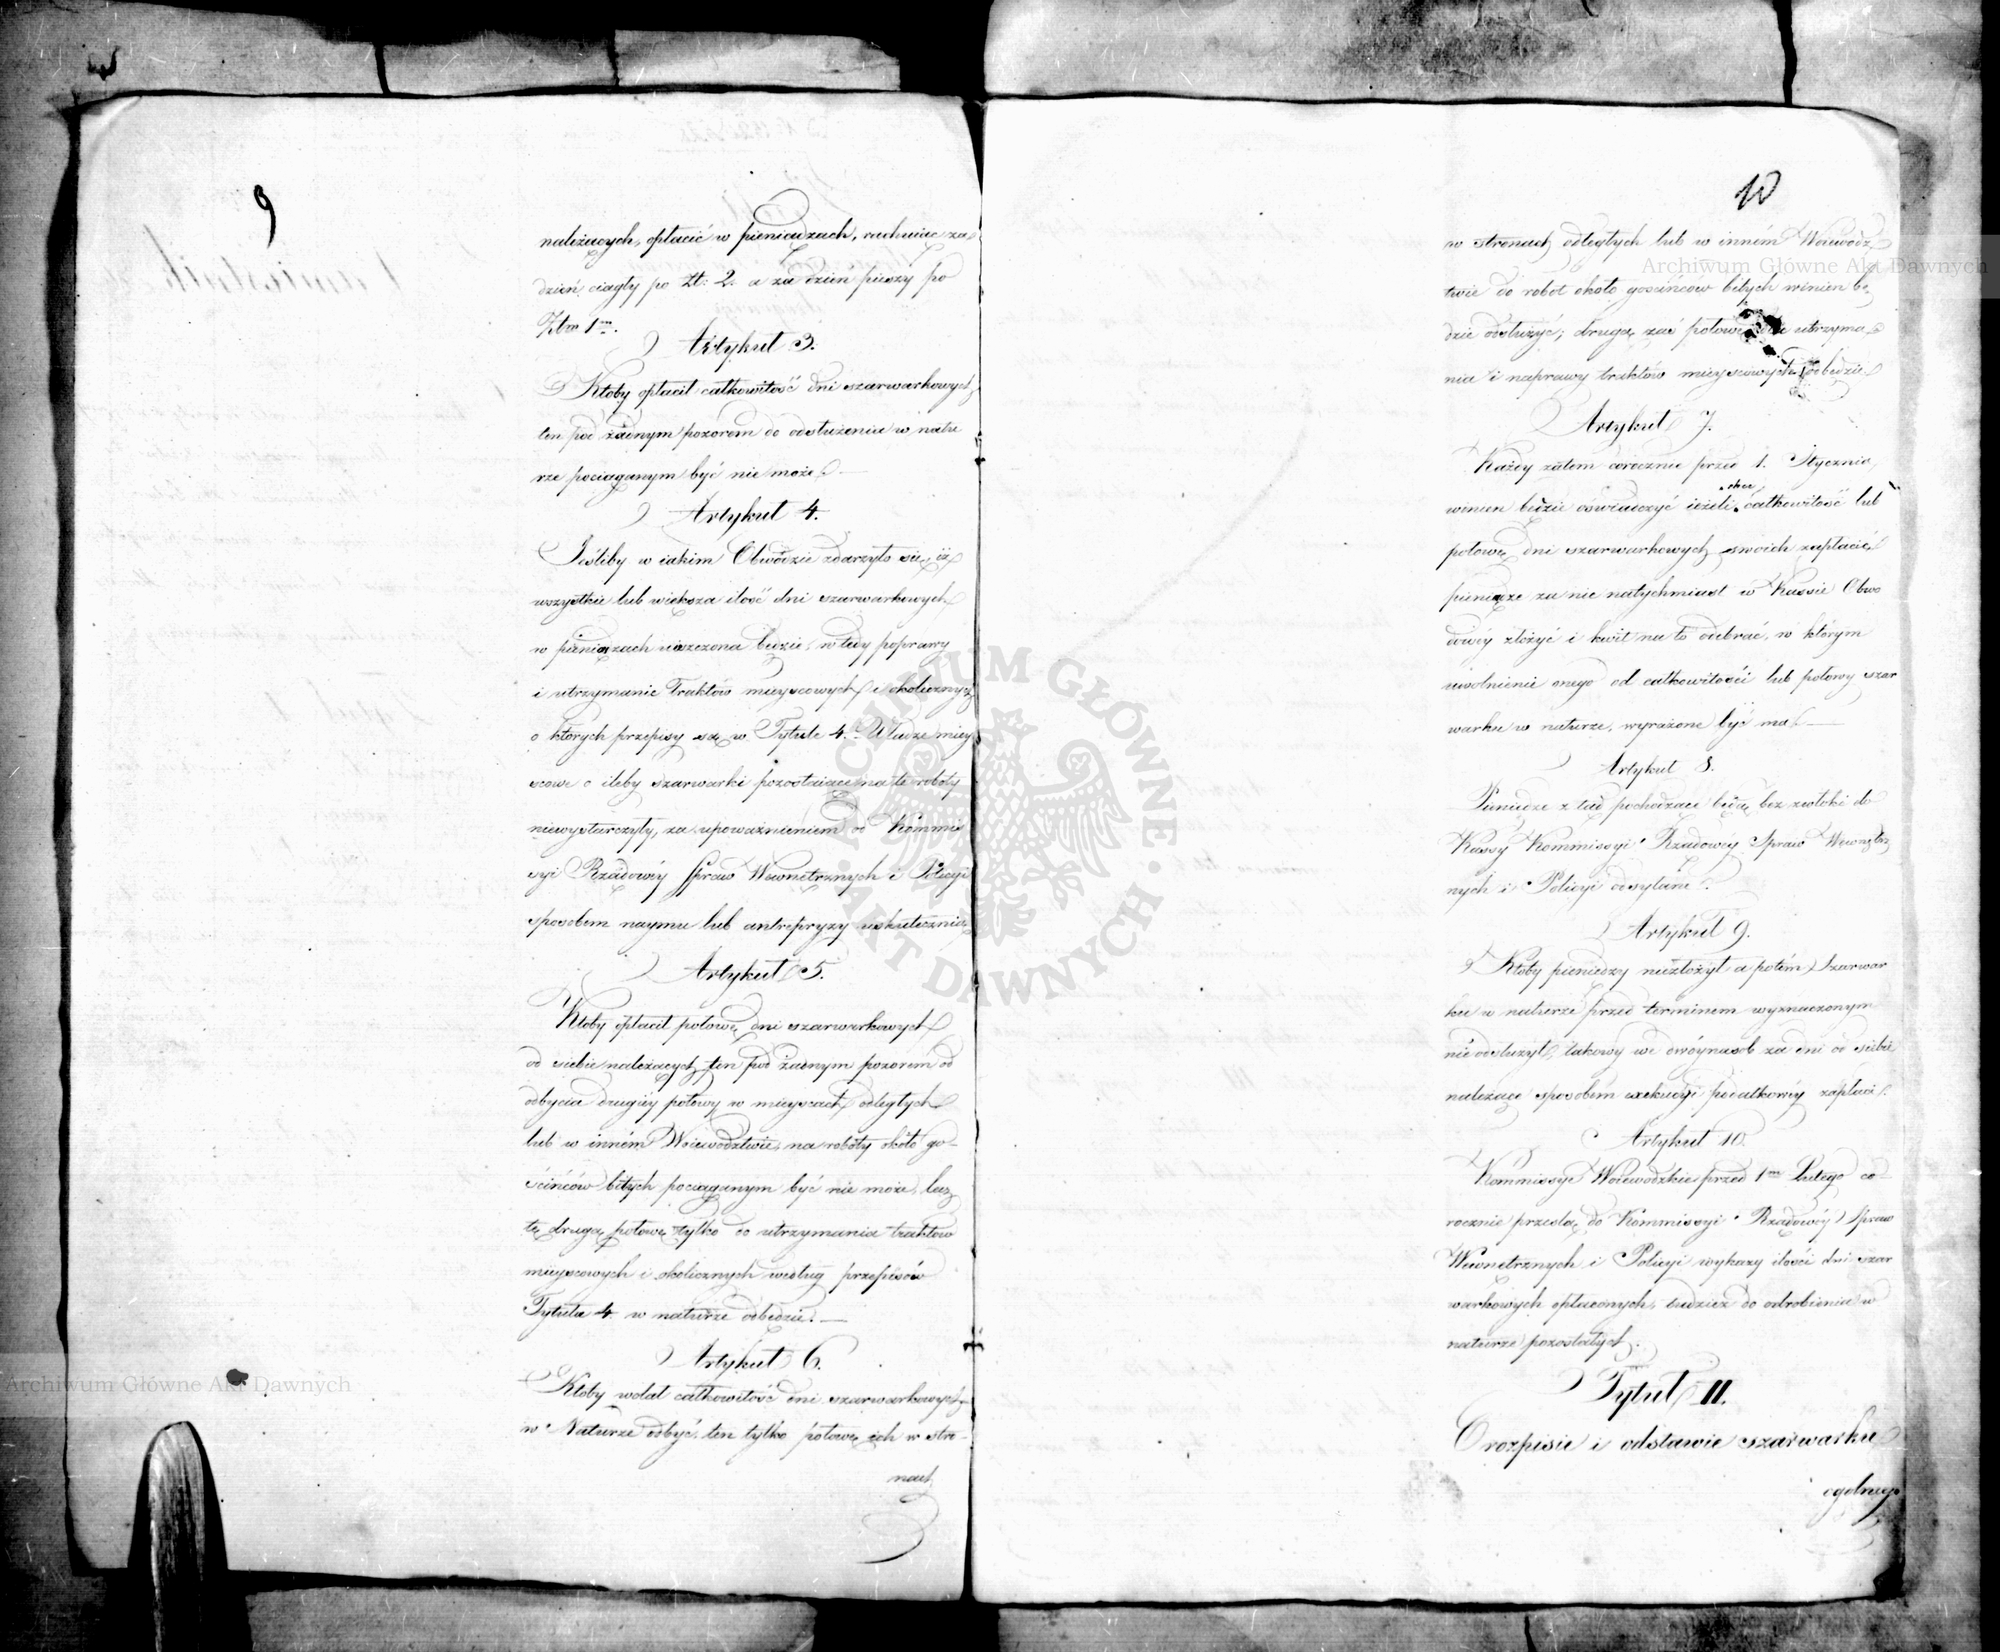 9
należących, opłacić w pieniądzach, rachuiąc za
dzień ciągły po Zł: 2. a za dzień pieszy po
Złm 1m.
Artykuł 3.
Ktoby opłacił całkowitość dni szarwarkowych,
ten pod żadnym pozorem do odsłużenia w natu
rze pociąganym być nie może. —
Artykuł 4.
Jeśliby w iakim Obwodzie zdarzyło się, iż
wszystkie lub większa ilość dni szarwarkowych
w pieniązach uiszczona będzie, wtedy poprawy
i utrzymanie Traktów mieyscowych i okolicznych
o których przepisy są w Tytule 4. Władze miey
scowe o ileby szarwarki pozostaiące na te roboty
niewystarczyły, za upoważnieniem od Kommis
syi Rządowéy Spraw Wewnętrznych i Policyi
sposobem naymu lub antrepryzy uskutecznią.
Artykuł 5.
Ktoby opłacił połowę dni szarwarkowych
od siebie należących, ten pod żadnym pozorem od
odbycia drugiéy połowy w mieyscach odległych
lub w inném Woiewództwie, na roboty około go-
ścińców bitych pociąganym być nie może, lecz
tę drugą połowę tylko do utrzymania traktów
mieyscowych i okolicznych według przepisów
Tytułu 4. w naturze odbędzie. —
Artykuł 6.
Ktoby wolał całkowitość dni szarwarkowych
w Naturze odbyć, ten tylko połowę ich w stro-
nach
10
w stronach odległych lub w inném Woiewódz
twie do robot około gościńców bitych winien bę
dzie odsłużyć; drugą zaś połowę do utrzyma
nia i naprawy traktów mieyscowych odbędzie.
Artykuł 7.
Każdy zatem corocznie przed 1. Stycznia,
winien będzie oświadczyć ieżeli chce całkowitość lub
połowę dni szarwarkowych swoich zapłacić,
pieniądze za nie natychmiast w Kassie Obwo
dowéy złożyć i kwit na to odebrać, w którym
uwolnienie onego od całkowitości lub połowy szar
warku w naturze, wyrażone być ma. —
Artykuł 8.
Pieniądze z tąd pochodzące będą bez zwłoki do
Kassy Kommissyi Rządowéy Spraw Wewnętrz
nych i Policyi odsyłane.
Artykuł 9.
Ktoby pieniędzy niezłożył a potém Szarwar
ku w naturze przed terminem wyznaczonym
nie odsłużył, takowy we dwóynasób za dni od siebie
należące sposobem exekucyi podatkowéy zapłaci.
Artykuł 10.
Kommissye Woiewódzkie przed 1m Lutego co-
rocznie prześlą do Kommissyi Rządowéy Spraw
Wewnętrznych i Policyi wykazy ilości dni szar
warkowych opłaconych, tudzież do odrobienia w
naturze pozostałych.
Tytuł II.
O rozpisie i odstawie szarwarku
ogólnego
Archiwum Główne Akt Dawnych
Archiwum Główne Akt Dawnych
ARCHIWUM GŁÓWNE · AKT DAWNYCH ·